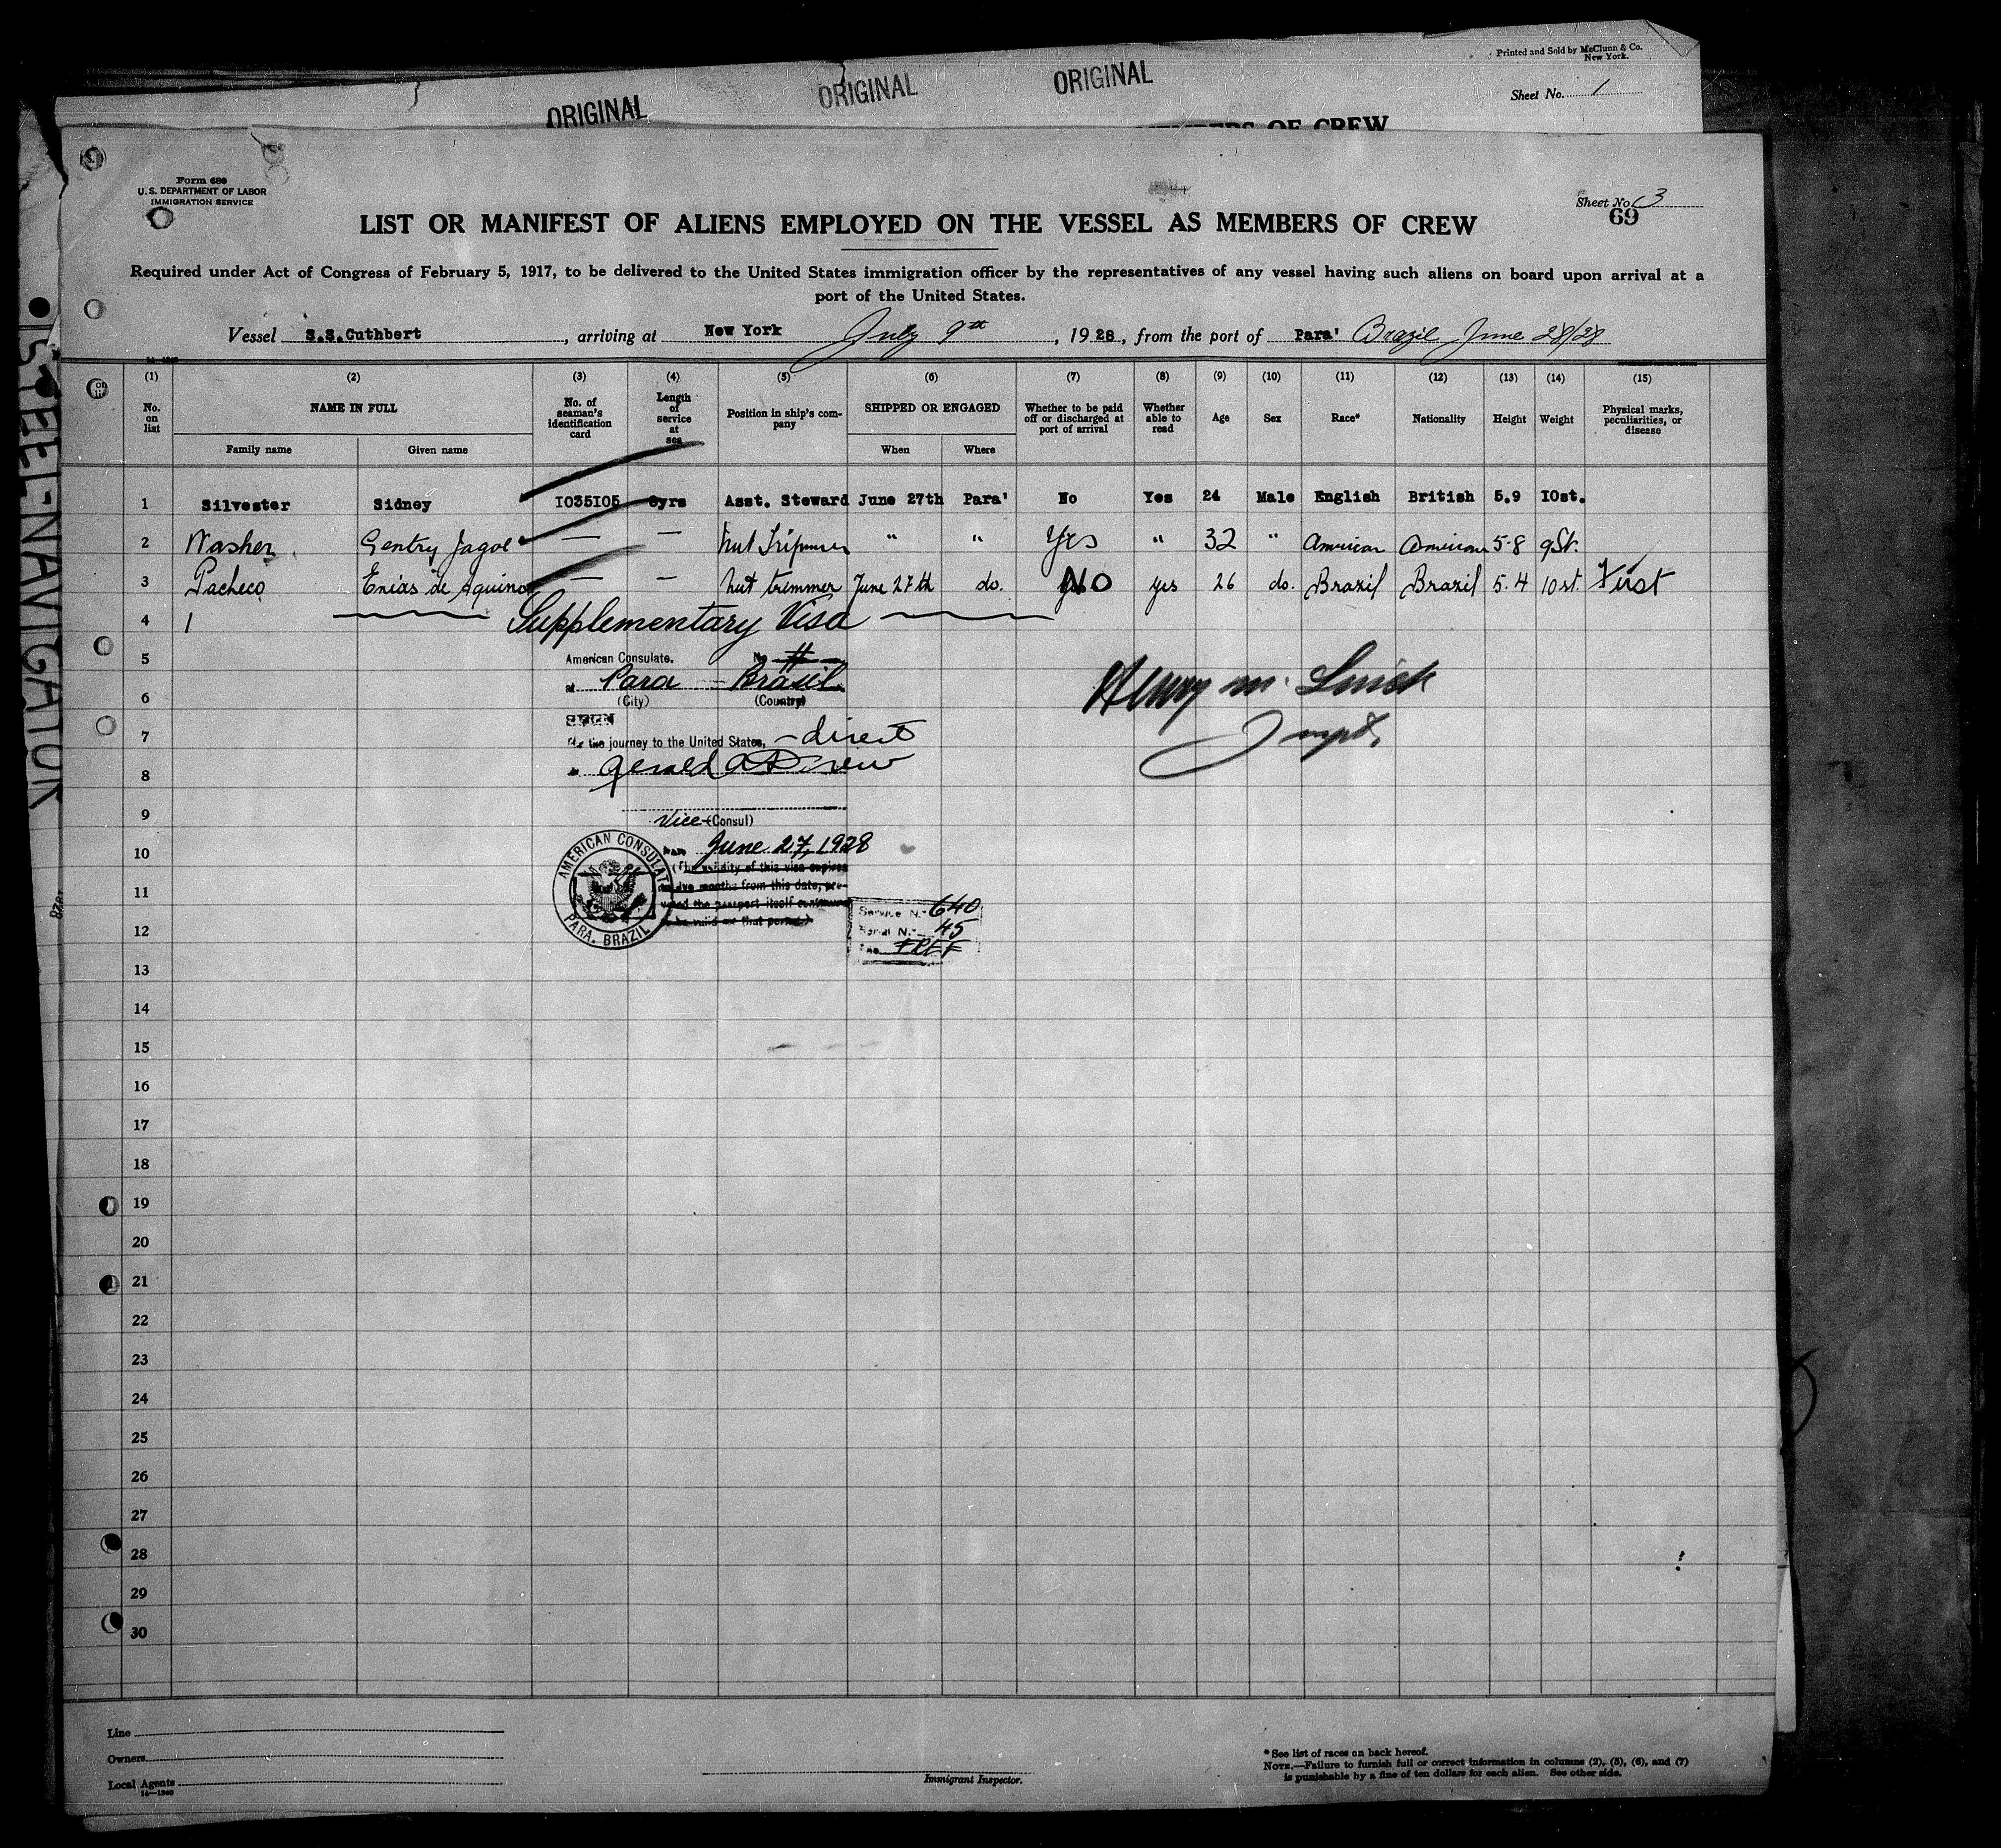 Printed and Sold by McClunn & Co.
New York.
Sheet No. 1
ORIGINAL ORIGINAL ORIGINAL
MEMBERS OF CREW
Form 680
U. S. DEPARTMENT OF LABOR
IMMIGRATION SERVICE
Sheet No. 3
69
LIST OR MANIFEST OF ALIENS EMPLOYED ON THE VESSEL AS MEMBERS OF CREW
Required under Act of Congress of February 5, 1917, to be delivered to the United States immigration officer by the representatives of any vessel having such aliens on board upon arrival at a
port of the United States.
Vessel S.S.Cuthbert, arriving at New York July 9th, 1928, from the port of Para' Brazil June 28/28
(1) (2) (3) (4) (5) (6) (7) (8) (9) (10) (11) (12) (13) (14) (15)
No. on list
NAME IN FULL
Family name
Given name
No. of seaman's identification card
Length of service at sea
Position in ship's company
SHIPPED OR ENGAGED
When
Where
Whether to be paid off or discharged at port of arrival
Whether able to read
Age
Sex
Race*
Nationality
Height
Weight
Physical marks, peculiarities, or disease
1 Silvester Sidney I035I05 8yrs Asst. Steward June 27th Para' No Yes 24 Male English British 5.9 IOst.
2 Washer Gentry Jagoe — — nut " " Yes " 32 " American American 5-8 9St.
3 Pacheco Enias de Aquino — — nut tremmer June 27th do. No yes 26 do. Brazil Brazil 5.4 10st. First
4 Supplementary Visa
5 American Consulate. No
6 at Para - Brasil
(City) (Country)
7 For the journey to the United States, - direct
8 Gerald A Drew
9 Vice-(Consul)
10 Date June 27, 1928
(The validity of this visa expires
twelve months from this date, pro-
vided the passport itself continues
to be valid for that period.)
AMERICAN CONSULATE
PARA. BRAZIL
Service No. 640
Serial No. 45
Fee FREE
Henry M.
Inspt.
11
12
13
14
15
16
17
18
19
20
21
22
23
24
25
26
27
28
29
30
Line
Owners
Local Agents
14—1240
Immigrant Inspector.
* See list of races on back hereof.
NOTE.—Failure to furnish full or correct information in columns (2), (5), (6), and (7)
is punishable by a fine of ten dollars for each alien. See other side.
STEEL NAVIGATOR